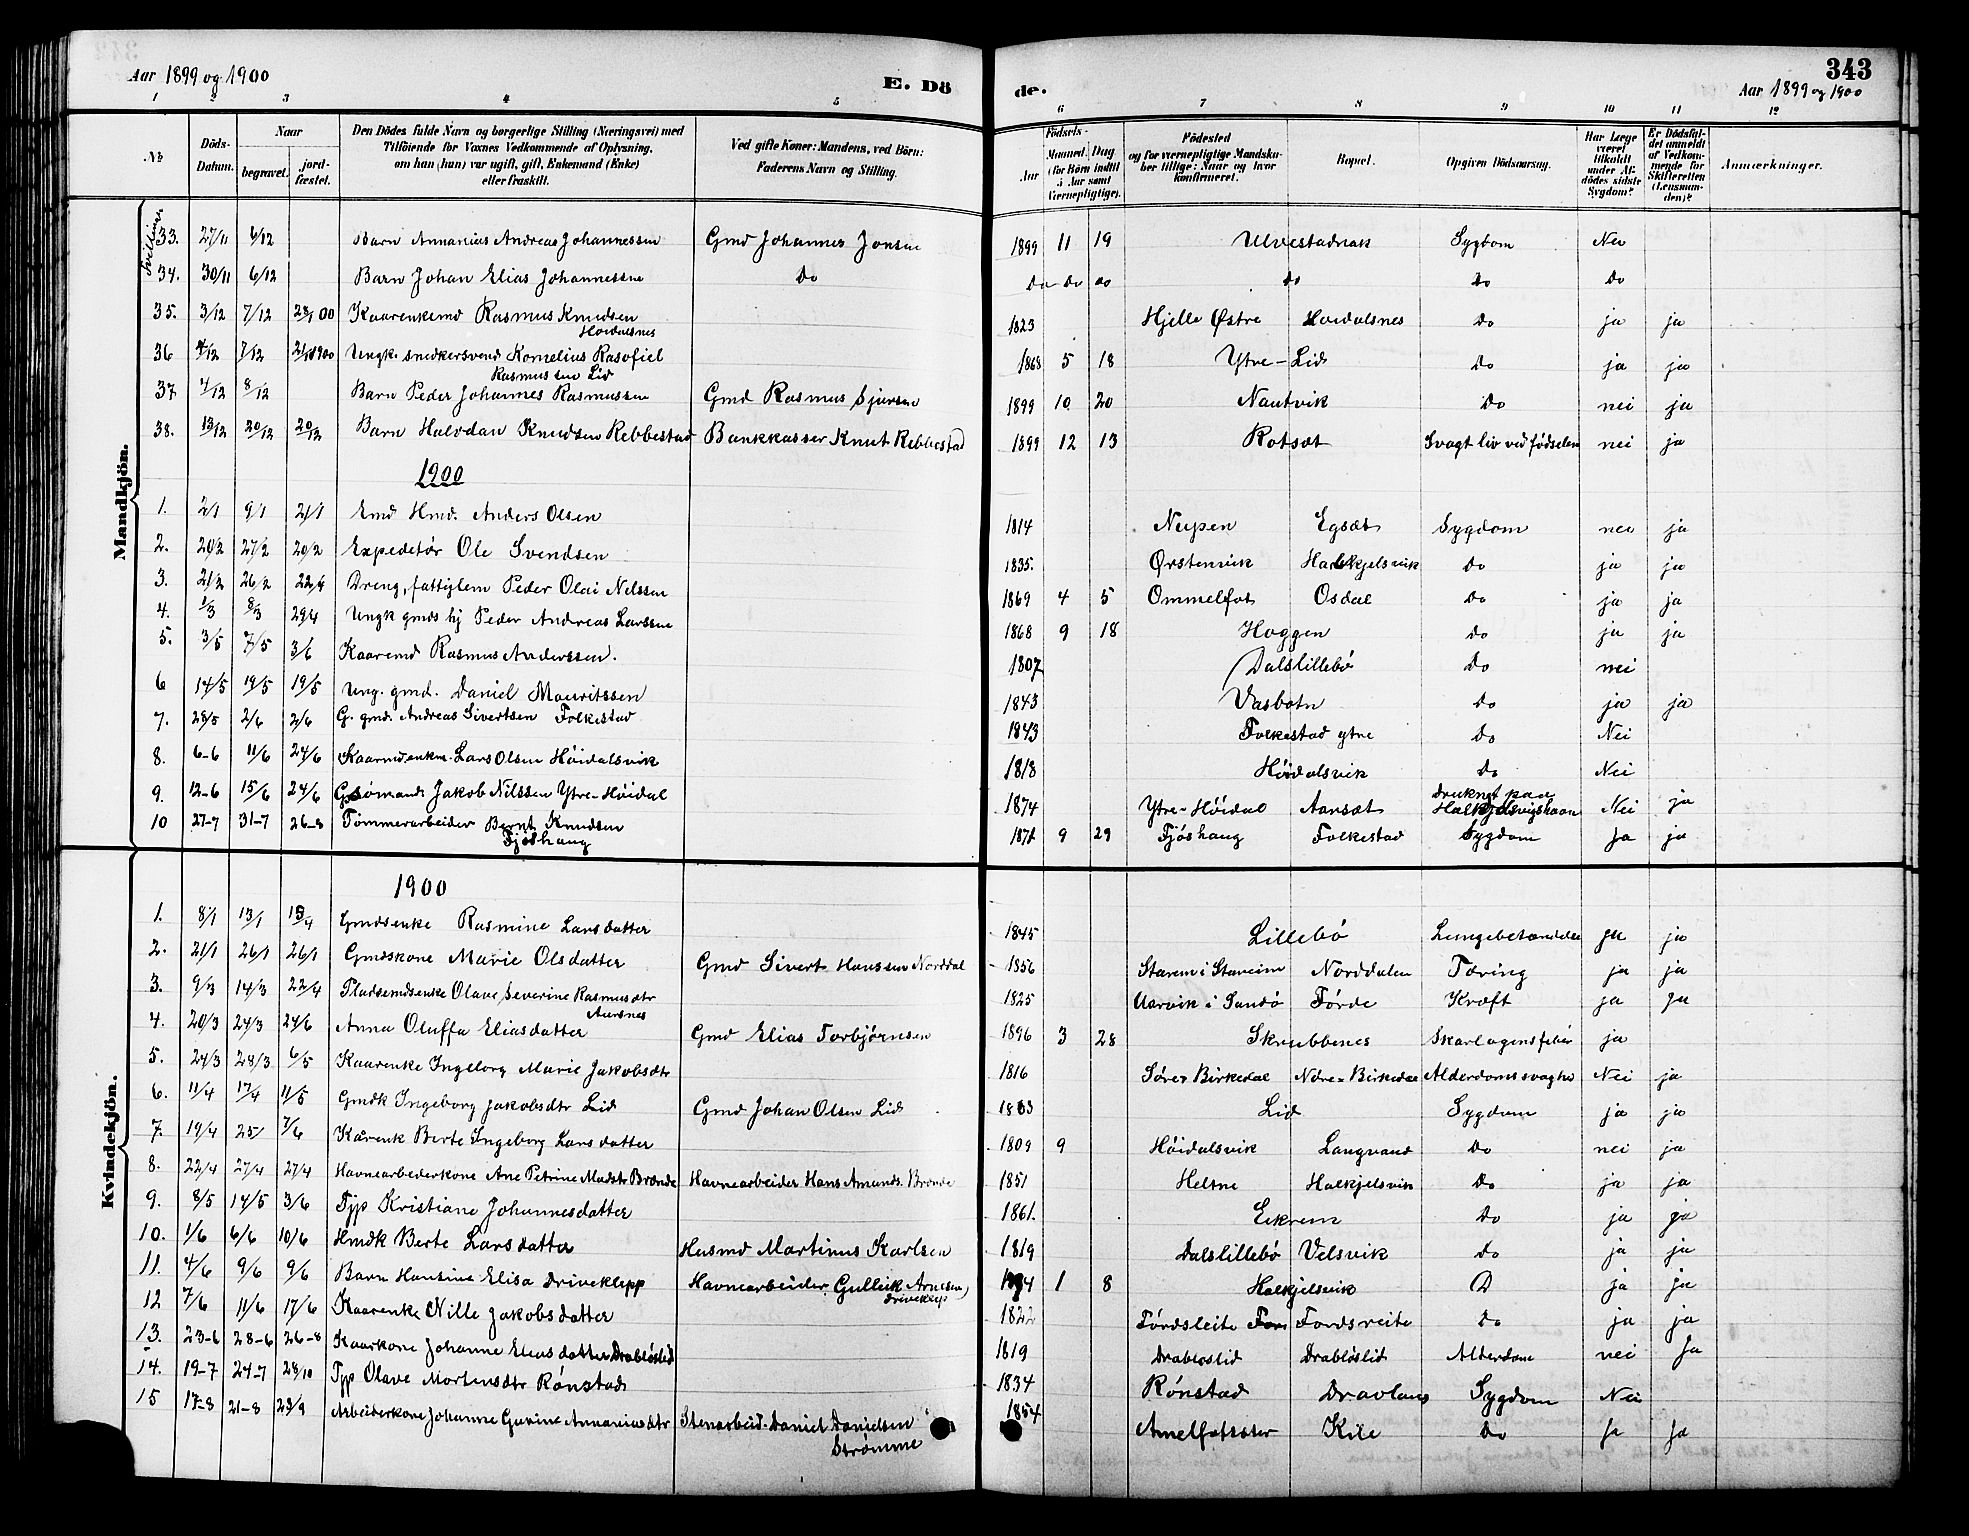 343
Aar 1899 og 1900
E. Dö
de.
Aar 1899 og 1900
1 2 3 4 5 6 7 8 9 10 11 12
No
Döds-Datum.
Naar
begravet.
jord-fæstet.
Den Dödes fulde Navn og borgerlige Stilling (Næringsvei) med
Tilföiende for Voxnes Vedkommende af Oplysning,
om han (hun) var ugift, gift, Enkemand (Enke)
eller fraskilt.
Ved gifte Koner: Mandens, ved Börn:
Faderens Navn og Stilling.
Födsels-
Aar
Maaned. Dag
(for Börn indtil
5 Aar samt
Værnepligtige).
Födested
og for værnepligtige Mandska-
ber tillige: Naar og hvor
konfirmeret.
Bopæl.
Opgiven Dödsaarsag.
Har Læge
været
tilkaldt
under Af-
dödes sidste
Sygdom?
Er Dödsfal-
det anmeldt
af Vedkom-
mende for
Skifteretten
(Lensman-
den)?
Anmærkninger.
Mandkjön.
Tvillinger
33. 27/11 6/12 Barn Annanias Andreas Johannessen Gmd Johannes Jonsen 1899 11 19 Ulvestadnak Sygdom Nei
34. 30/11 6/12 Barn Johan Elias Johannessen Do Do Do Do Do Do Do
35. 3/12 7/12 Kaarenkemd Rasmus Knudsen Höidalsnes 1823 Hjelle Østre Höidalsnes Do ja ja
36 4/12 7/12 Ungk. snedkersvend Kornelius Rasofiel Rasmussen Lid 1868 5 18 Ytre-Lid Do ja ja
37 4/12 8/12 Barn Peder Johannes Rasmussen Gmd Rasmus Sjursen 1899 10 20 Nautvik Do nei ja
38. 13/12 20/12 20/12 Barn Halvdan Knudsen Rebbestad Bankkasser Knut Rebbestad 1899 12 13 Rotsæt Svagt liv ved födselen nei ja
1900
1. 2/1 9/1 21/1 Emd Hmd. Anders Olsen 1814 Nupen Egsæt Sygdom nei ja
2. 20/2 27/2 20/2 Expeditör Ole Svendsen 1835. Ørstenvik Halkjelsvik Do ja ja
3. 21/2 26/2 22/4 Dreng, fattiglem Peder Olai Nilssen 1869 4 5 Ommelfot Osdal Do ja ja
4. 1/3 8/3 29/4 Ungk gmds hj Peder Andreas Larssen 1868 9 18 Hoggen Do ja ja
5. 3/5 7/5 3/6 Kaaremd Rasmus Anderssen. 1807 Dalslillebö Do nei
6 14/5 19/5 19/5 Ung. gmd. Daniel Mouritssen 1843 Vasbotn Do ja ja
7. 28/5 2/6 2/6 G. gmd. Andreas Sivertsen Folkestad 1843 Folkestad ytre Do Nei
8. 6-6 11/6 24/6 Kaarmdenkm. Lars Olsen Höidalsvik 1818 Höidalsvik Do Nei
9. 12-6 15/6 24/6 Gsömand Jakob Nilssen Ytre-Höidal 1874 Ytre-Höidal Aarsæt Druknet paa Halkjelsvigshavn Nei ja
10 27-7 31-7 26-8 Tömmerarbeider Bernt Knudsen Fjöshaug 9 29 Fjöshaug Folkestad Sygdom Ja ja
Kvindekjön.
1900
1. 8/1 13/1 Gmdsenke Rasmine Larsdatter 1845 Lillebö Lungebetændelse ja ja
2. 21/1 26/1 26/1 Gmdskone Marie Olsdatter Gmd Sivert Hanssen Norddal 1856 Starem i Stareim Norddalen Tæring ja ja
3. 9/3 14/3 22/4 Pladsemdsenke Olave Severine Rasmusdtr Aursnes 1825 Aarvik i Sandö Förde Kræft ja ja
4. 20/3 24/3 24/6 Anna Oluffa Eliasdatter Gmd Elias Torbjörnsen 1896 3 28 Skrubbenes Skarlagensfeber ja
5. 24/3 28/3 6/5 Kaarenke Ingeborg Marie Jakobsdtr 1816 Söre Birkedal Nedre-Birkedal Alderdomssvaghed Nei ja
6. 11/4 17/4 11/5 Gmdk Ingeborg Jakobsdtr Lid Gmd Johan Olsen Lid 1863 Lid Sygdom ja ja
7. 19/4 25/ 7/6 Kårenk Berte Ingeborg Larsdatter 1809 9 Höidalsvik Langvand Do nei ja
8. 22/4 27/4 27/4 Havnearbederkone Ane Petrine Madsdtr Brænde Havnearbeider Hans Amunds. Brænde 1851 Heltne Halkjelsvik Do ja ja
9. 8/5 14/5 3/6 Tjp Kristiane Johannesdatter 1861. Eikrem Do ja ja
10. 1/6 6/6 10/6 Hmdk Berte Larsdatter Husmd Martinus Karlsen 1819 Dalslillebö Velsvik Do ja ja
11. 4/6 9/6 9/6 Barn Hansine Elisa Driveklepp Havnearbeider Gullik Arnesen Driveklep 1 8 Halkjelsvik D ja ja
12 7/6 11/6 17/6 Kaarenke Nille Jakobsdatter 1822 Fördsleite Fordsreite Do ja ja
13. 23-6 28-6 26-8 Kaarkone Johanne Eliasdatter Drabløslid 1819 Drabløslid Drabløslid Alderdom nei Ja
14. 19-7 24-7 28/10 Tjp Olave Mortensdtr Rönstad 1834 Rönstad Dravlaus Sygdom Nei
15 17-8 21-8 23/9 Arbeiderkone Johanne Gurine Annaniasdtr Stenarbeid. Daniel Danielsen Strømme 1854 Amelfotsæter Kile Do Ja Ja